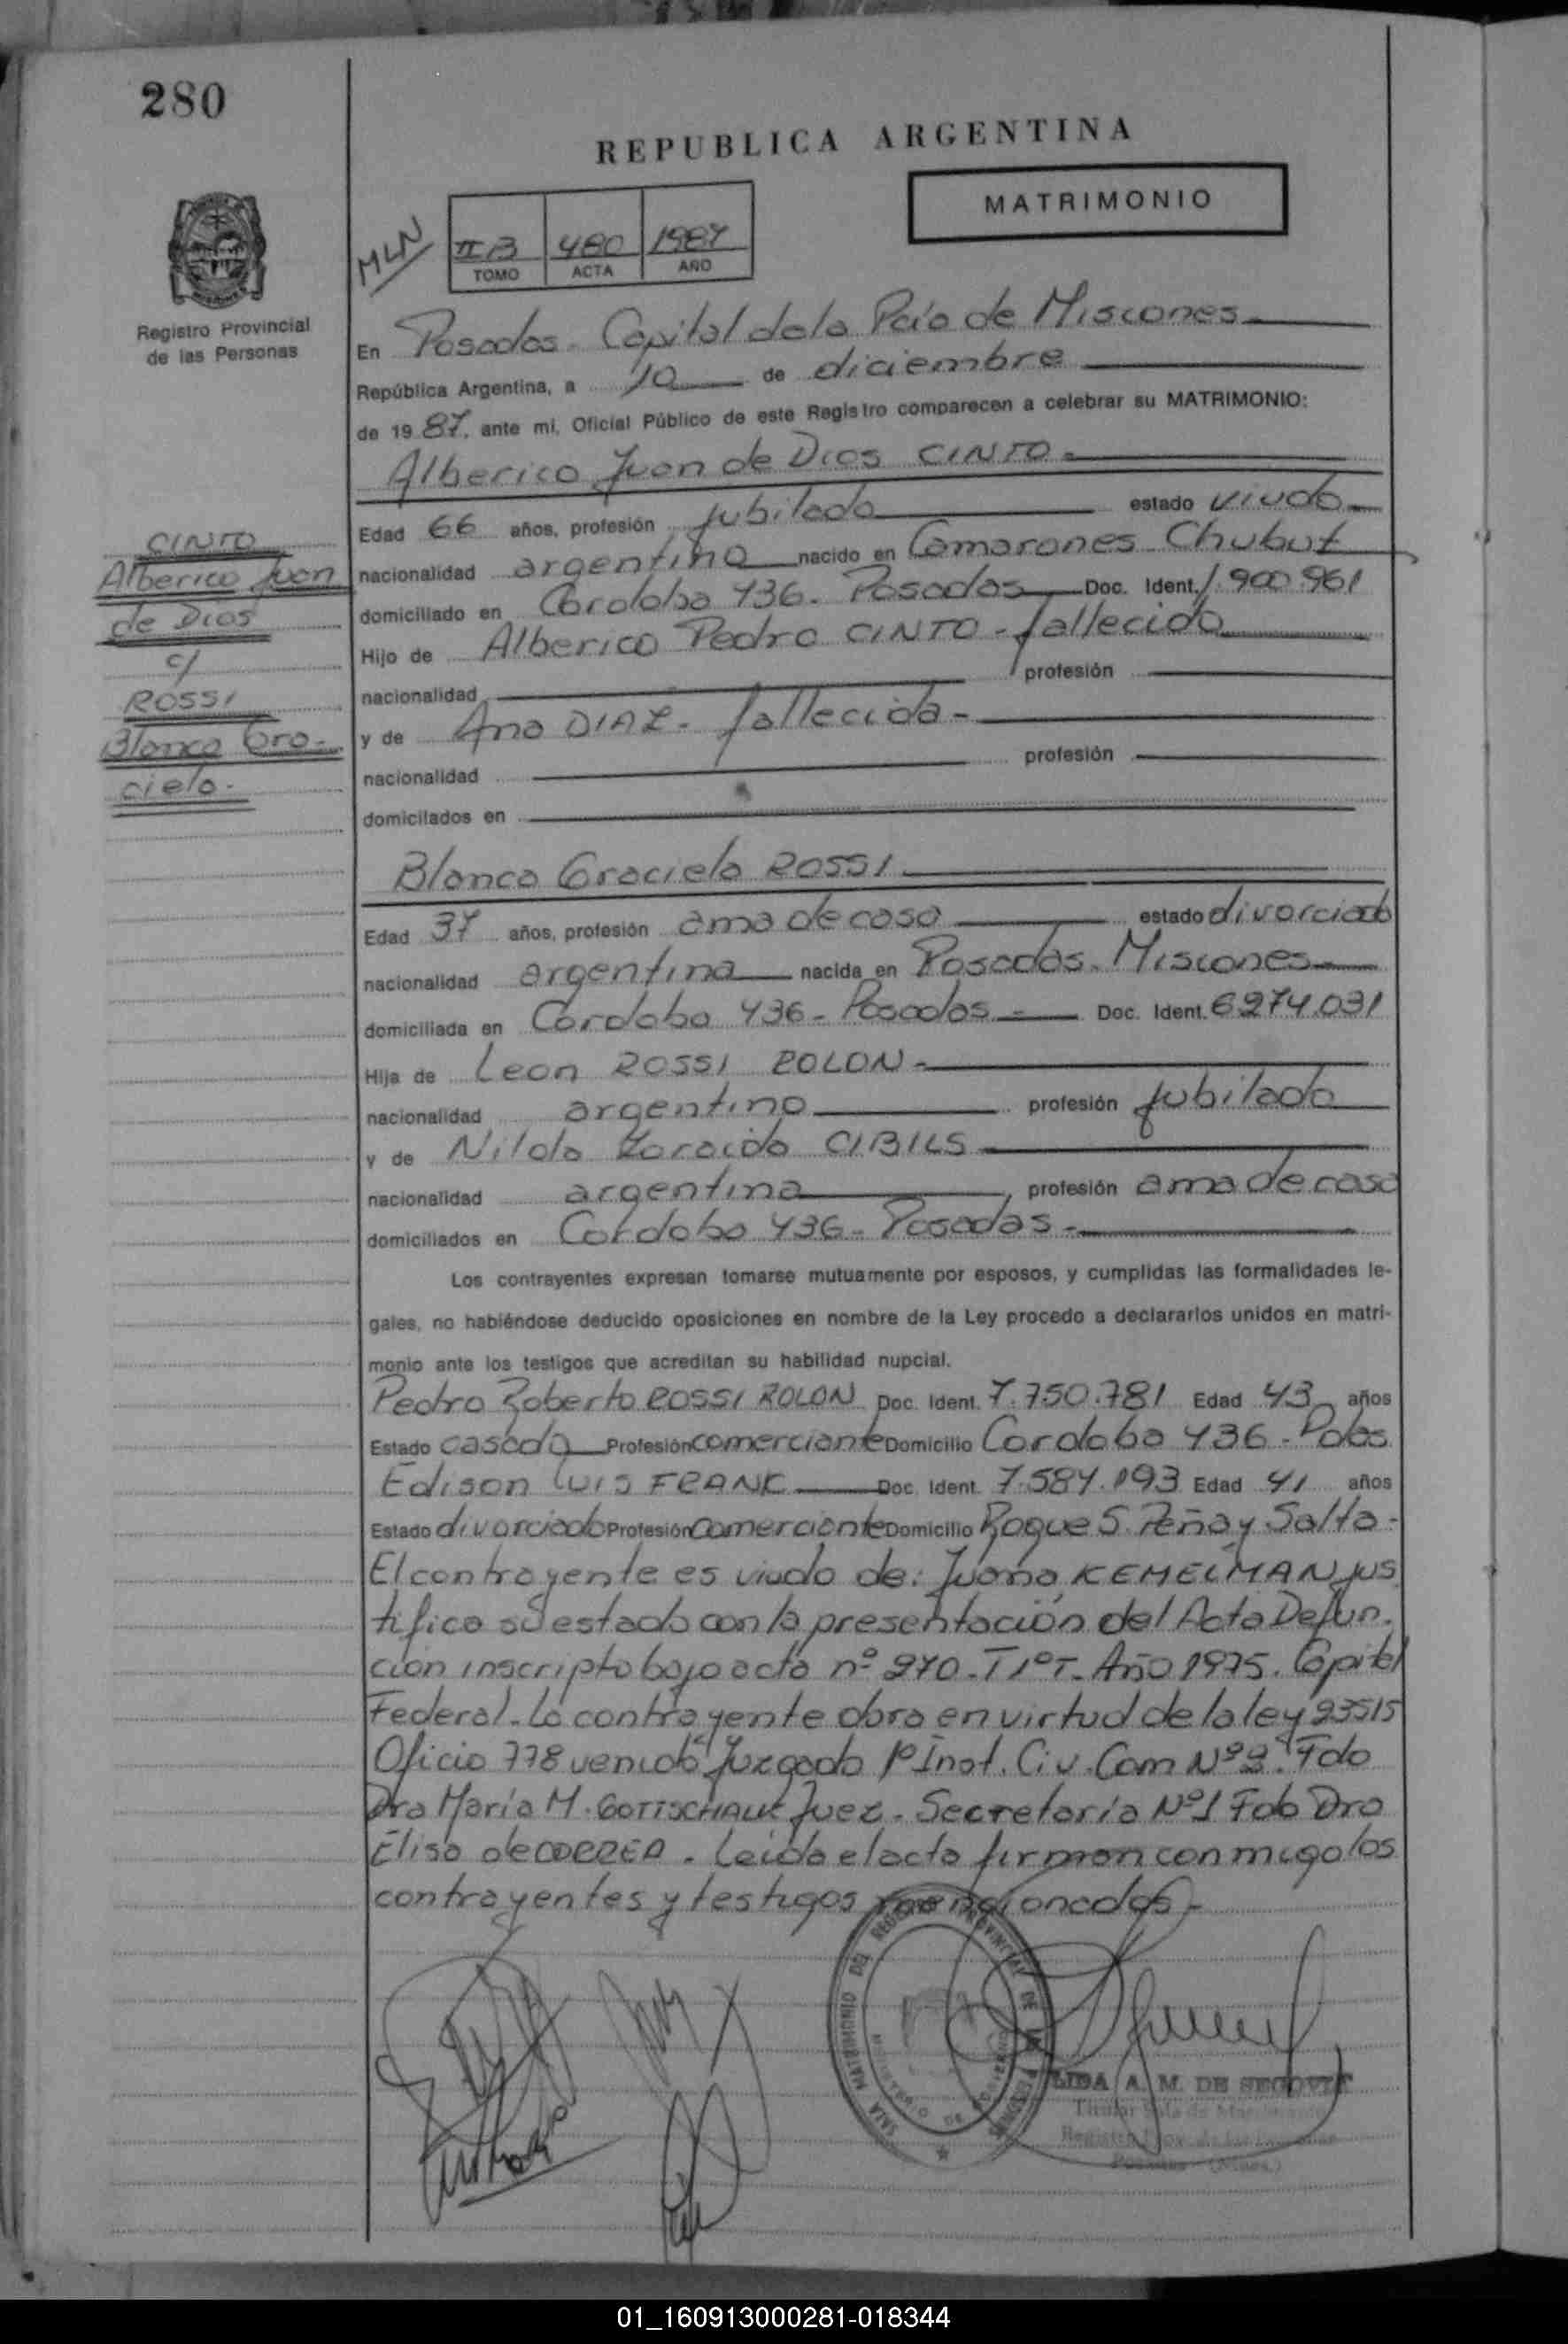 280
REPUBLICA ARGENTINA
MATRIMONIO
MLN
II B 480 1987
TOMO ACTA AÑO
Registro Provincial
de las Personas
En Posadas - Capital de la Pcia de Misiones
República Argentina, a 10 de diciembre
de 1987, ante mí, Oficial Público de este Registro comparecen a celebrar su MATRIMONIO:
Alberico Juan de Dios CINTO
Edad 66 años, profesión jubilado estado viudo
nacionalidad argentina nacido en Camarones Chubut
domiciliado en Cordoba 436 - Posadas Doc. Ident. 1.900.961
Hijo de Alberico Pedro CINTO - fallecido
nacionalidad profesión
y de Ana DIAZ - fallecida -
nacionalidad profesión
domicilados en
CINTO
Alberico Juan
de Dios
c/
ROSSI
Blanca Gra-
ciela.-
Blanca Graciela ROSSI
Edad 37 años, profesión ama de casa estado divorciada
nacionalidad argentina nacida en Posadas - Misiones
domiciliada en Cordoba 436 - Posadas - Doc. Ident. 6274.031
Hija de Leon ROSSI ROLON -
nacionalidad argentino profesión jubilado
y de Nilda Zoraida CIBILS
nacionalidad argentina, profesión ama de casa
domiciliados en Cordoba 436 - Posadas -
Los contrayentes expresan tomarse mutuamente por esposos, y cumplidas las formalidades le-
gales, no habiéndose deducido oposiciones en nombre de la Ley procedo a declararlos unidos en matri-
monio ante los testigos que acreditan su habilidad nupcial.
Pedro Roberto ROSSI ROLON Doc. Ident. 7.750.781 Edad 43 años
Estado casado Profesión comerciante Domicilio Cordoba 436 - Pdas
Edison Luis FRANK Doc. Ident. 7.584.193 Edad 41 años
Estado divorciado Profesión comerciante Domicilio Roque S. Peña y Salta -
El contrayente es viudo de: Juana KEHELMAN jus
tifica su estado con la presentación del Acta Defun-
cion inscripto bajo acta nº 270 - T 1º T - Año 1975. Capital
Federal - La contrayente obra en virtud de la ley 23515
Oficio 778 venido Juzgado 1º Inst. Civ. Com Nº 2. Fdo
Dra Maria M. GOTTSCHALK Juez - Secretaria Nº 1 Fdo Dra
Elisa de CORREA . Leida el acta firman conmigo los
contrayentes y testigos mencionados -
SALA MATRIMONIO DEL REGISTRO PROVINCIAL DE LAS PERSONAS
MINISTERIO DE GOBIERNO
LIDA A. M. DE SEGOVIA
Titular Sala de Matrimonio
Registro Prov. de las Personas
Posadas (Mnes.)
01_160913000281-018344